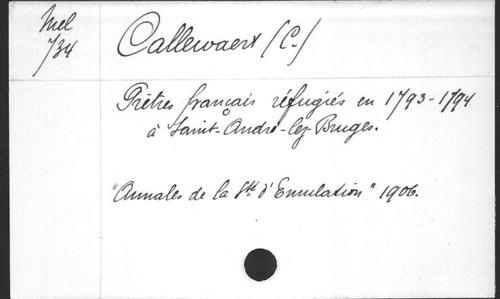 Mel
734
Callewaert (C.)
Prêtres français réfugiés en 1793-1794
à Saint-André-lez-Bruges.
"Annales de la Sté d'Emulation" 1906.